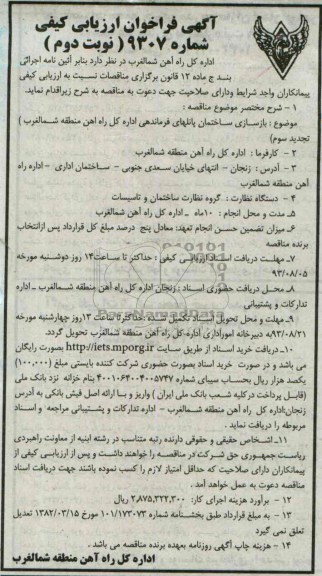 آگهی فراخوان ارزیابی کیفی
شماره ۹۳۰۷ ( نوبت دوم )
اداره کل راه آهن شمالغرب در نظر دارد بنابر آئین نامه اجرائی
بند ج ماده ۱۲ قانون برگزاری مناقصات نسبت به ارزیابی کیفی
پیمانکاران واجد شرایط ودارای صلاحیت جهت دعوت به مناقصه به شرح زیراقدام نماید.
۱ – شرح مختصر موضوع مناقصه :
موضوع : بازسازی ساختمان پانلهای فرماندهی اداره کل راه آهن منطقه شمالغرب ( تجدید سوم)
۲ – کارفرما : اداره کل راه آهن منطقه شمالغرب
۳ – آدرس : زنجان – انتهای خیابان سعدی جنوبی – ساختمان اداری – اداره راه آهن منطقه شمالغرب
۴ – دستگاه نظارت : گروه نظارت ساختمان و تاسیسات
۵ـ مدت و محل انجام : ۱۰ماه ـ اداره کل راه آهن شمالغرب
۶ـ میزان تضمین حسن انجام تعهد: معادل پنج درصد مبلغ کل قرارداد پس ازانتخاب برنده مناقصه
۷ـ مهلت دریافت اسناد ارزیابی کیفی : حداکثر تا ساعت۱۴ روز دوشنبه مورخه ۹۳/۰۸/۰۵
۸ـ محل دریافت حضوری اسناد : زنجان اداره کل راه آهن منطقه شمالغرب ـ اداره تدارکات و پشتیبانی
۹ـ مهلت و محل تحویل اسناد تکمیل شده: حداکثرتا ساعت ۱۴روز چهارشنبه مورخه ۹۳/۰۸/۲۱به دبیرخانه اموراداری اداره کل راه آهن منطقه شمالغرب تحویل گردد.
۱۰ـ دریافت خرید اسناد از طریق سایت http://iets.mporg.ir بصورت رایگان
می باشد و در صورت خرید اسناد بصورت حضوری شرکت کننده بایستی مبلغ (۱۰۰,۰۰۰)
یکصد هزار ریال بحساب سیبای شماره ۴۰۰۱۰۶۴۰۰۴۰۰۵۷۴۷ بنام خزانه نزد بانک ملی
(قابل پرداخت در کلیه شعب بانک ملی ایران ) واریز و با ارائه اصل فیش بانکی به آدرس
زنجان:اداره کل راه آهن منطقه شمالغرب – اداره تدارکات و پشتیبانی مراجعه و اسناد
مربوطه را دریافت نماید .
۱۱ـ اشخاص حقیقی و حقوقی دارنده رتبه متناسب در رشته ابنیه از معاونت راهبردی
ریاست جمهوری حق شرکت در مناقصه را خواهند داشت و پس از ارزیابی کیفی از
پیمانکاران دارای صلاحیت که حداقل امتیاز لازم را کسب نموده باشند جهت دریافت اسناد
مناقصه دعوت به عمل خواهد آمد .
۱۲ – برآورد هزینه اجرای کار: ۲,۸۷۵,۳۲۲,۳۰۰ ریال
۱۳ – به مبلغ قرارداد طبق بخشنامه شماره ۱۰۱/۱۷۳۰۷۳ مورخ ۱۳۸۲/۰۳/۱۵ تعدیل تعلق نمی گیرد
۱۴ – هزینه چاپ آگهی روزنامه بعهده برنده مناقصه می باشد .
اداره کل راه آهن منطقه شمالغرب